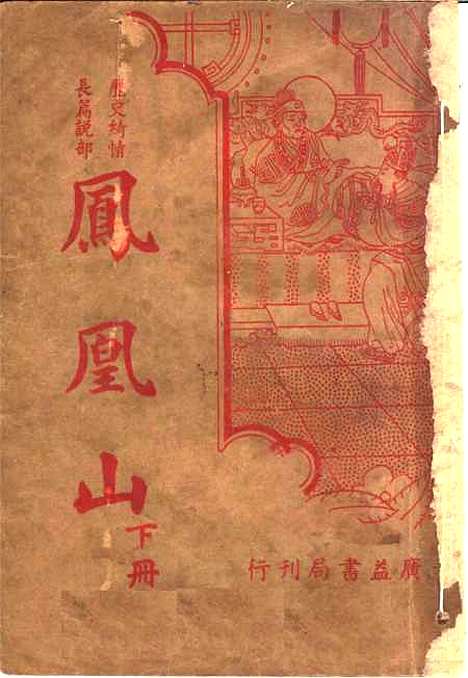 歷史綺情
長篇說部
鳳凰山
下冊
廣益書局刊行